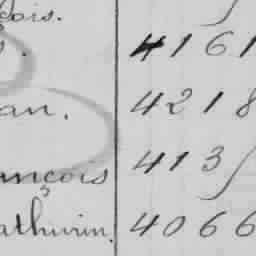 çois.
s. 4161
an. 4218
ançois 4135
athurin. 4066